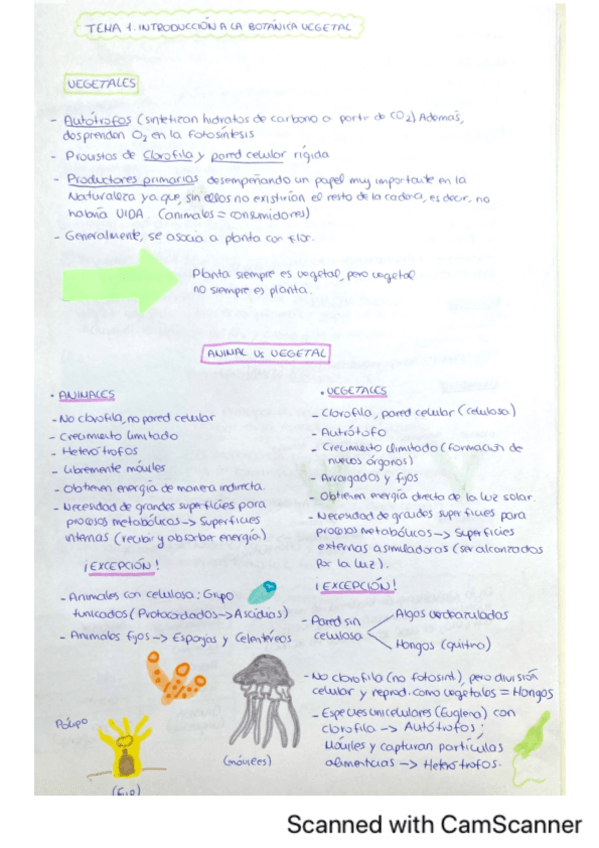 TEMA 1. INTRODUCCIÓN A LA BOTÁNICA VEGETAL
VEGETALES
- Autótrofos (sintetizan hidratos de carbono a partir de CO2) Además,
desprenden O2 en la Fotosíntesis
- Provistos de Clorofila y pared celular rígida
- Productores primarios desempeñando un papel muy importante en la
Naturaleza ya que, sin ellos no existirían el resto de la cadena, es decir, no
habría VIDA. (animales = consumidores)
- Generalmente, se asocia a planta con flor.
Planta siempre es vegetal, pero vegetal
no siempre es planta.
ANIMAL Vs VEGETAL
· ANIMALES
- No clorofila, no pared celular
- Crecimiento limitado
- Heterótrofos
- Libremente móviles
- Obtienen energía de manera indirecta.
- Necesidad de grandes superficies para
procesos metabólicos -> Superficies
internas (recibir y absorber energía)
¡EXCEPCIÓN!
- Animales con celulosa: Grupo
tunicados (Protocordados -> Ascidias)
- Animales fijos -> Esponjas y Celentéreos
Pólipo
(Fijo)
(móviles)
· VEGETALES
- Clorofila, pared celular (celulosa)
- Autrótofo
- Crecimiento ilimitado (formación de
nuevos órganos)
- Arraigados y fijos
- Obtienen energía directa de la luz solar.
- Necesidad de grandes superficies para
procesos metabólicos -> Superficies
externas asimiladoras (ser alcanzados
por la luz).
¡EXCEPCIÓN!
- Pared sin
celulosa
Algas verdeazuladas
Hongos (quitina)
- No clorofila (no fotosint.), pero división
celular y reprod. como vegetales = Hongos
- Especies unicelulares (Euglena) con
clorofila -> Autótrofos;
Móviles y capturan partículas
alimenticias -> Heterótrofos.
Scanned with CamScanner